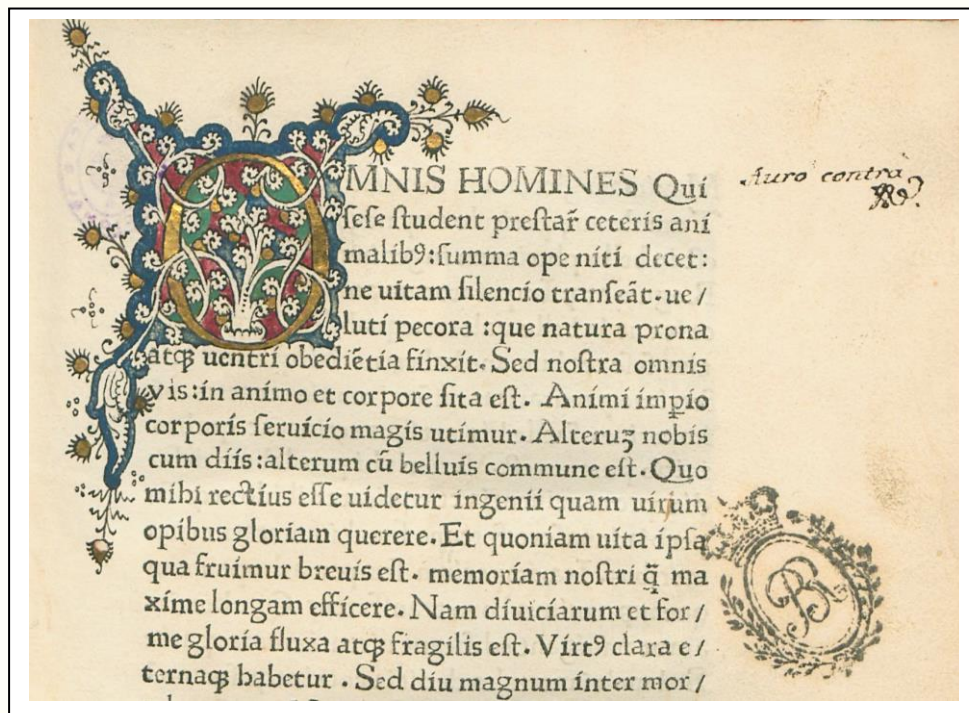 OMNIS HOMINES Qui
sese student prestar̃ ceteris ani
malibꝰ:summa ope niti decet:
ne uitam silencio transeãt.ue/
luti pecora :que natura prona
atqꝫ uentri obediẽtia finxit. Sed nostra omnis
vis:in animo et corpore sita est. Animi imꝑio
corporis seruicio magis utimur. Alteruꝫ nobis
cum diis:alterum cũ belluis commune est. Quo
mihi rectius esse uidetur ingenii quam uirium
opibus gloriam querere. Et quoniam uita ipsa
qua fruimur breuis est. memoriam nostri q̃ ma
xime longam efficere. Nam diuiciarum et for/
me gloria fluxa atqꝫ fragilis est. Virtꝰ clara e/
ternaqꝫ habetur . Sed diu magnum inter mor/
Auro contra